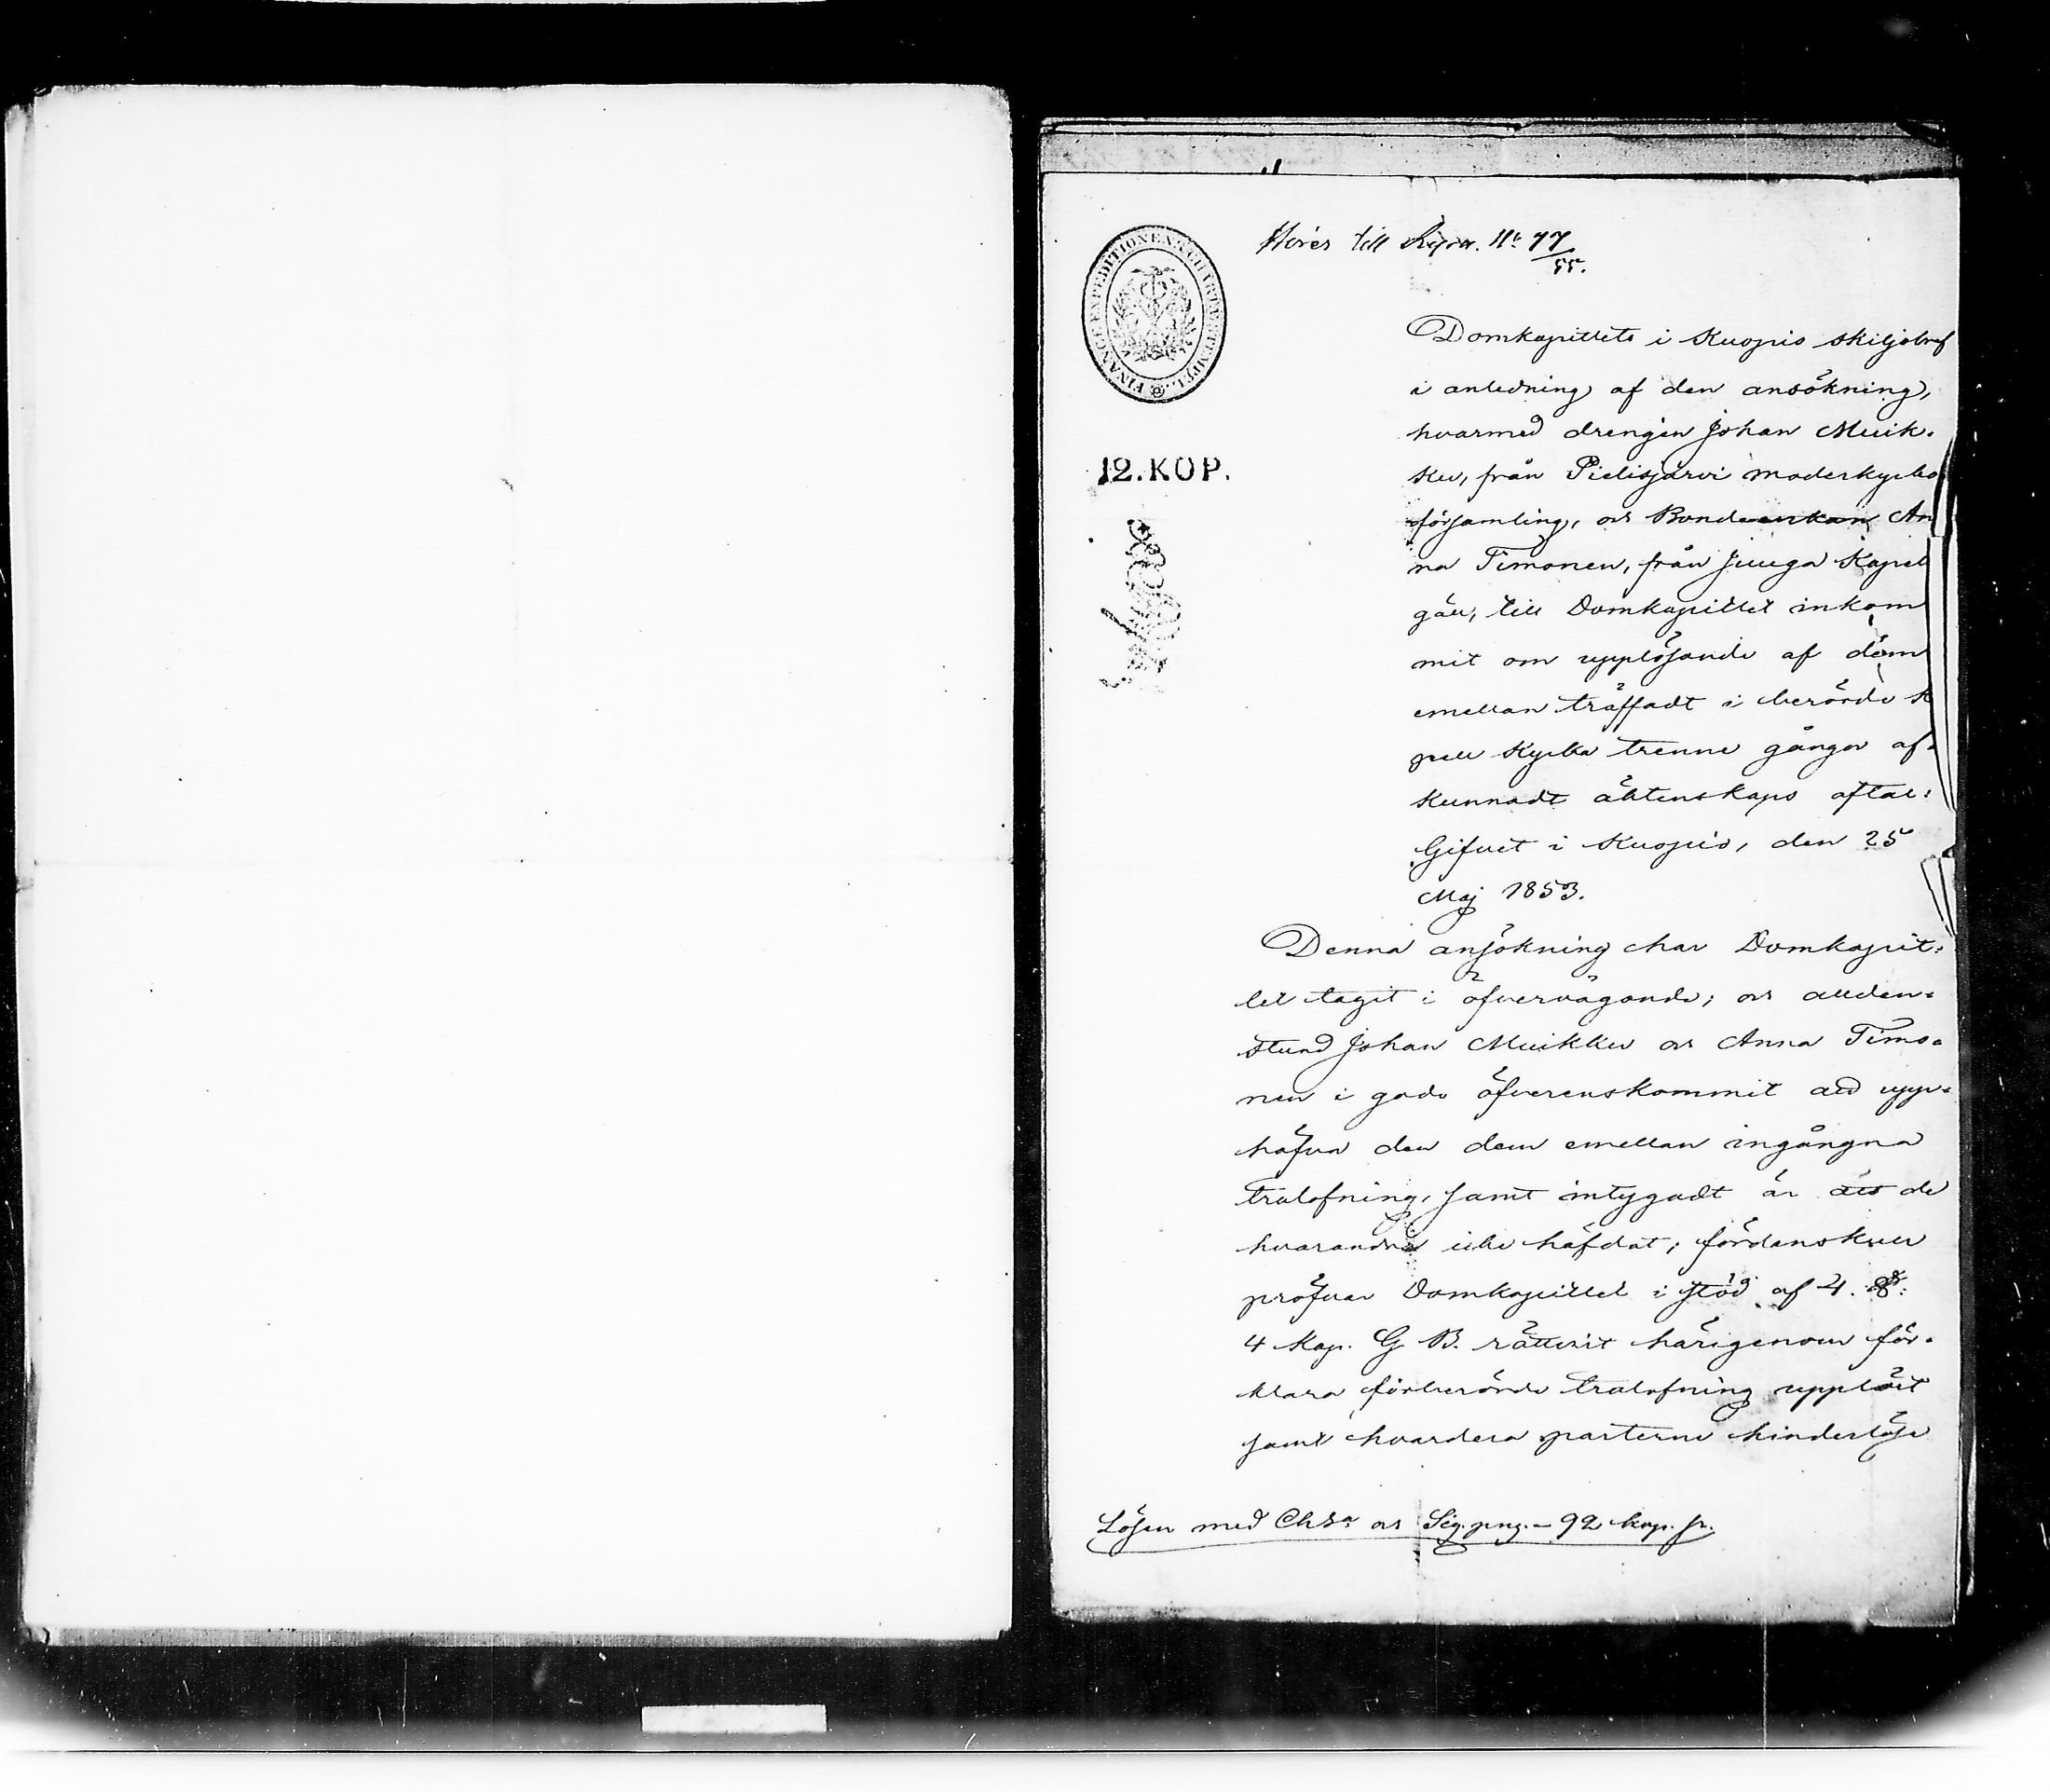 Hörer till Lysn. N: 77/55.
FINANCE EXPEDITIONENS CHARTÆ STEMPEL.
12.KOP.
Domkapitlets i Kuopio skiljobref
i anledning af den ansökning,
hvarmed drengen Johan Muik-
ku, från Pielisjärvi moderkyrko
församling, och Bondeenkan An
na Timonen, från Juuga Kapell
gäll, till Domkapitlet inkom
mit om upplösande af dem
emellan träffadt i berörde K
pell Kyrka trenne gånger af-
kunnadt äktenskaps aftal:
Gifvet i Kuopio, den 25
Maj 1853.
Denna ansökning har Domkapit-
let tagit i öfvervägande; och allden-
stund Johan Muikku och Anna Timo-
nen i godo öfverenskommit att upp-
häfva den dem emellan ingångna
trolofning, samt intygadt är att de
hvarandra icke häfdat; fördenskull
pröfvar Domkapitlet i stöd af 4. §:
4 Kap. G B. rättvist härigenom för-
klara förberörde trolofning upplöst
samt hvardera parterne hinderlöse
Lösen med Chta och Sig. png. – 92 kop. sr.